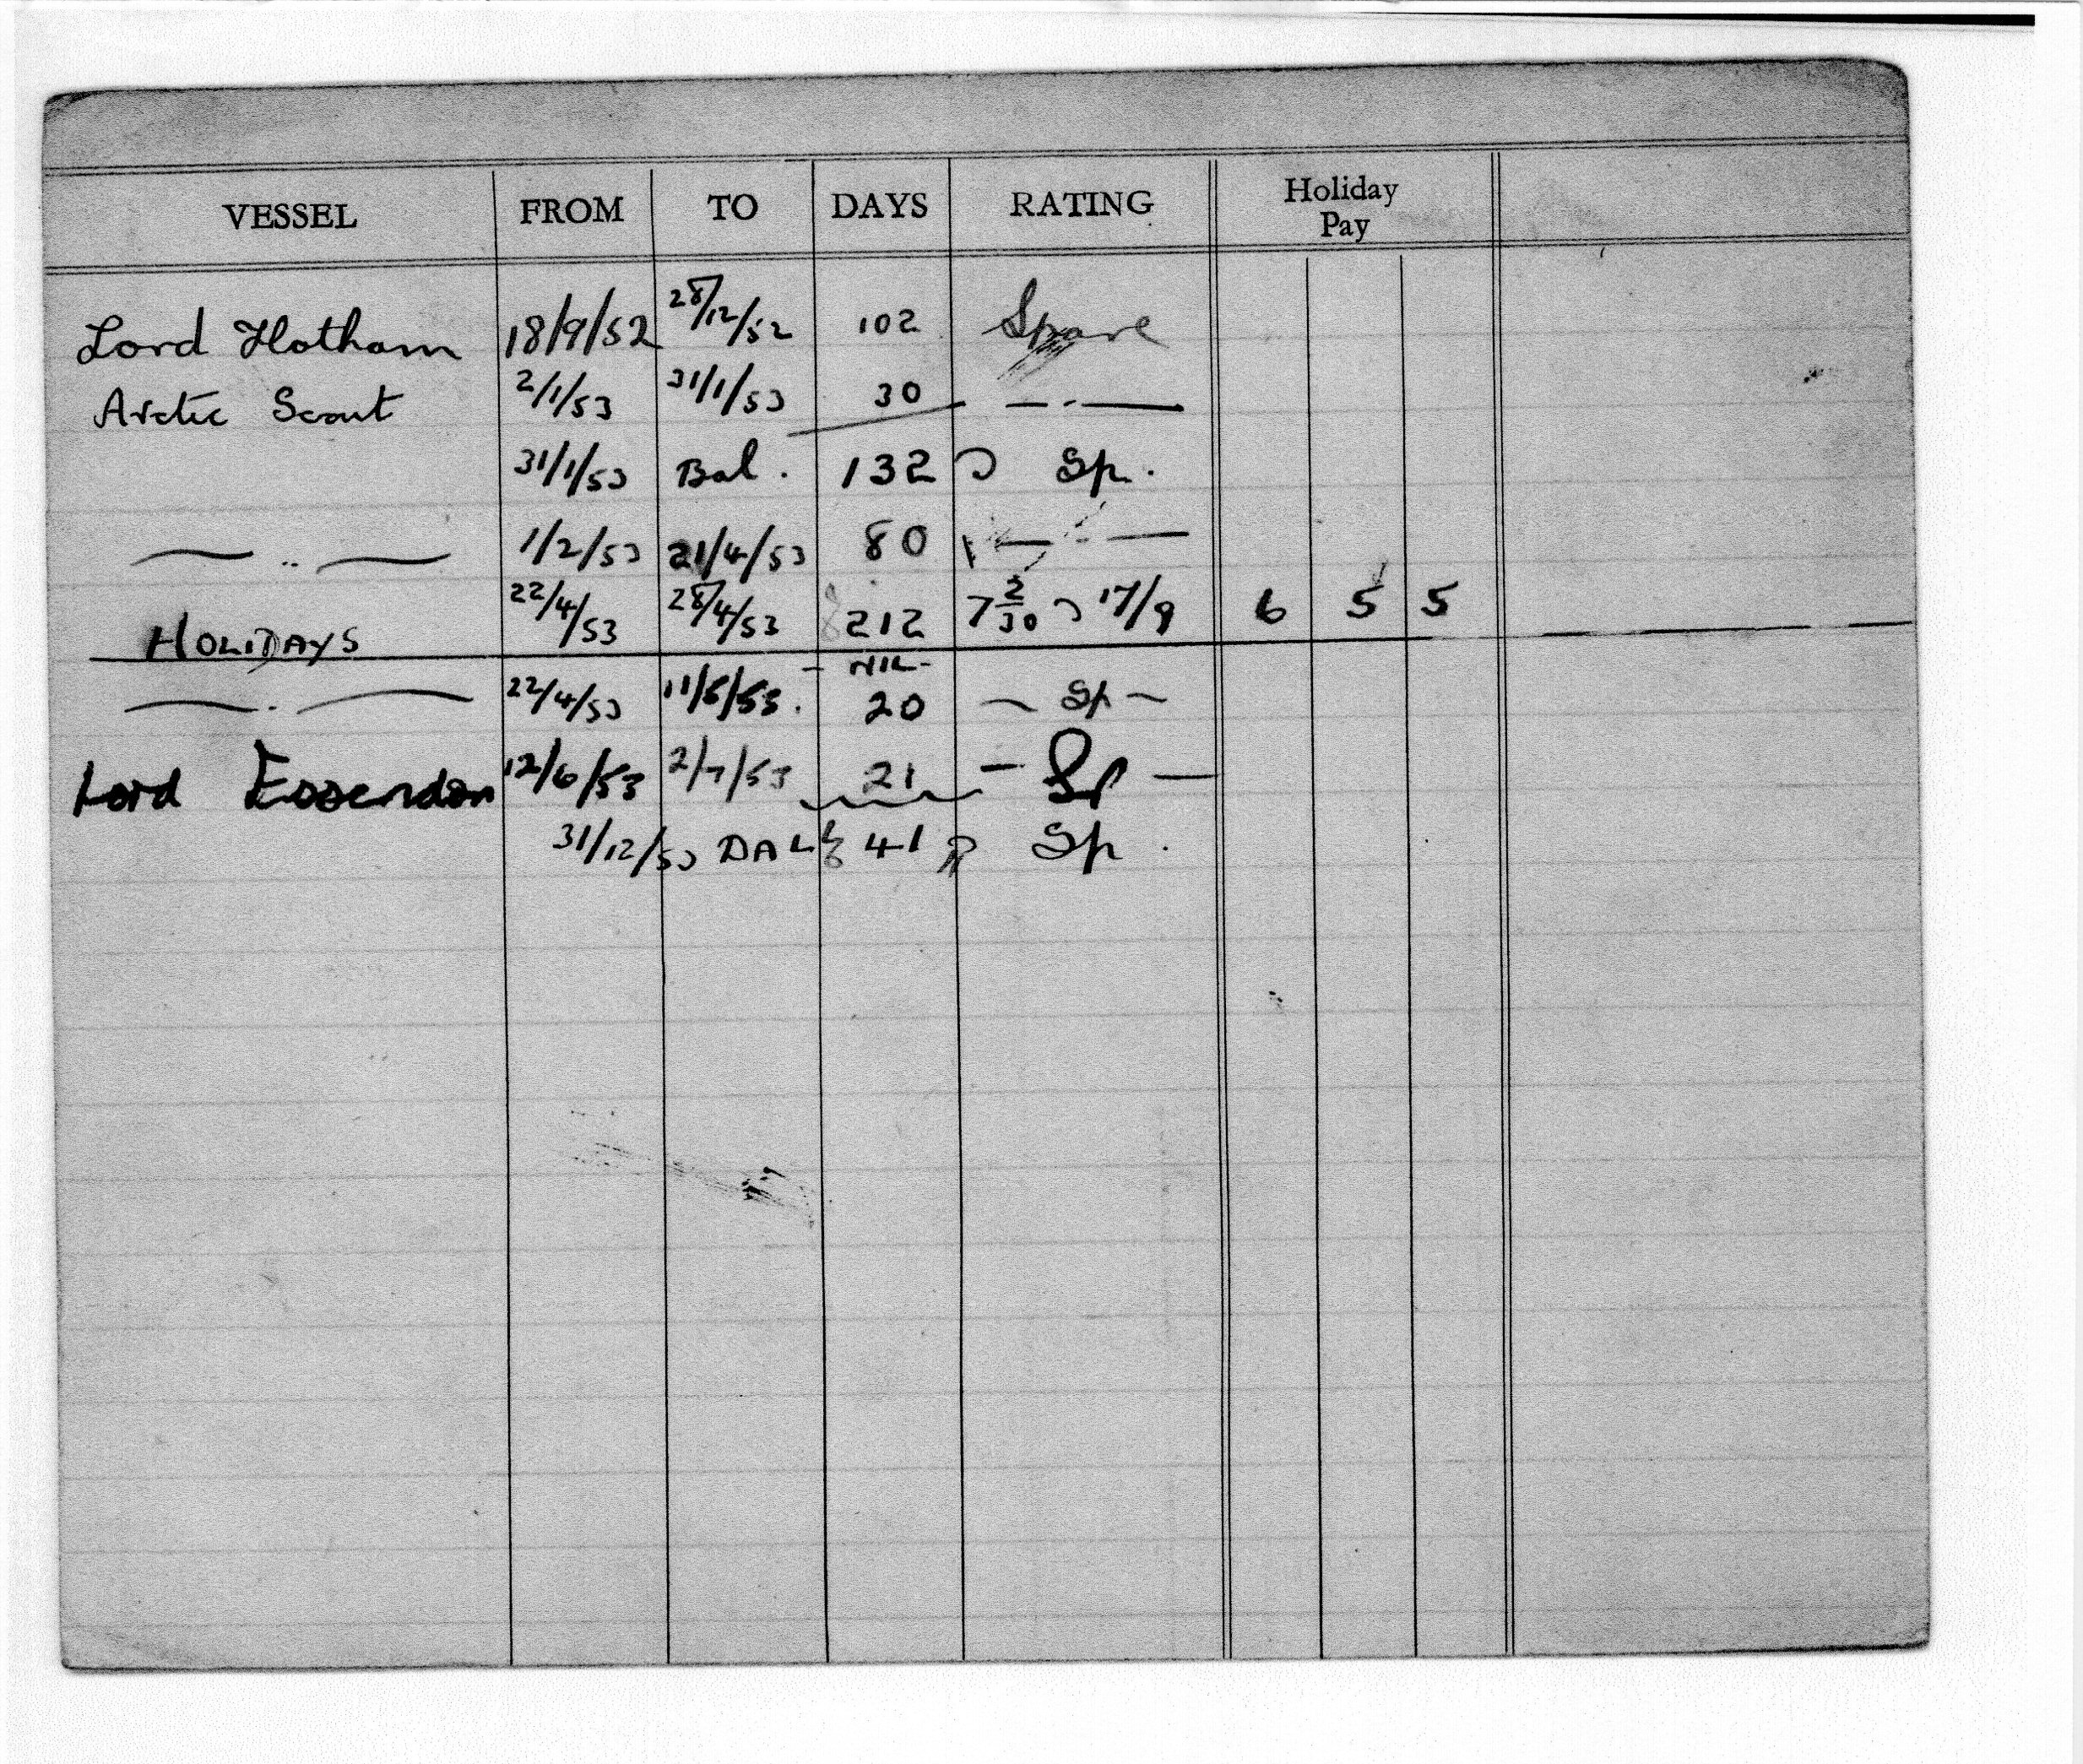 VESSEL FROM TO DAYS RATING Holiday Pay
Lord Hotham 18/9/52 28/12/52 102 Spare
Arctic Scout 2/1/53 31/1/53 30 — " —
31/1/53 Bal. 132 Sp.
— " — 1/2/53 21/4/53 80 — " —
HOLIDAYS 22/4/53 28/4/53 212 7 2/30 17/9 6 5 5
- NIL -
— " — 22/4/53 11/5/53. 20 — Sp —
Lord Essendon 12/6/53 2/7/53 21 — Sp —
31/12/53 41 Sp.